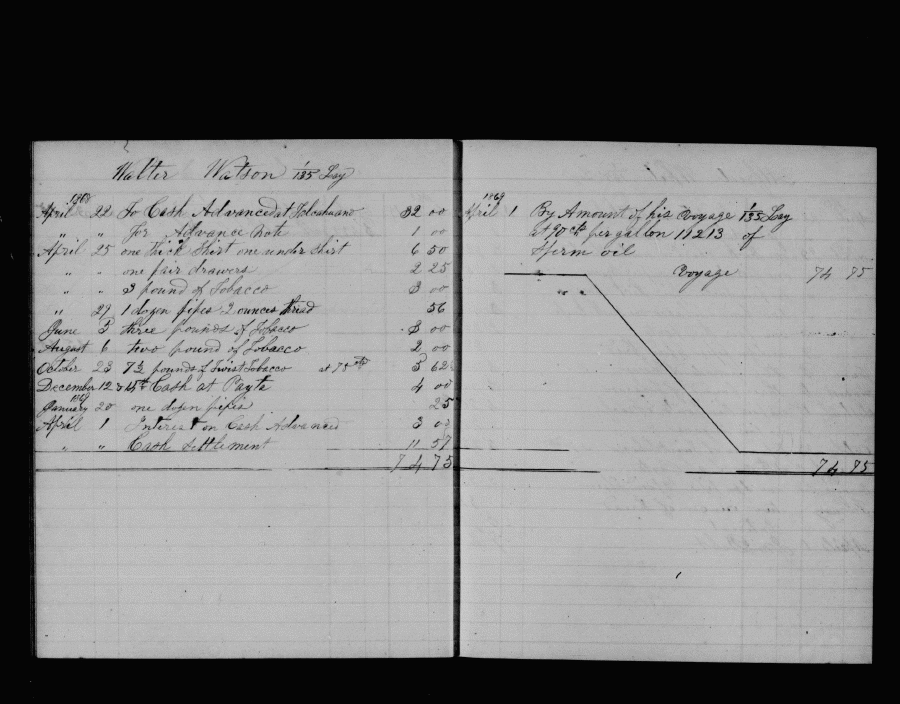 Walter Watson 1/135 Lay
1868
April 22 To Cash Advanced at Tolcahuano 32 00
" " For Advance Note 1 00
April 25 one thick Shirt one under Shirt 6 50
" " one pair drawers 2 25
" " 3 pound of Tobacco 3 00
" 29 1 dozen pipes 2 ounces thread 56
June 5 three pounds of Tobacco 3 00
August 6 two pound of Tobacco 2 00
October 23 7½ pounds of Twist Tobacco at 75 cts 5 62
December 12 & 15th Cash at Payta 4 00
1869
January 20 one dozen pipes 25
April 1 Interest on Cash Advanced 3 00
" " Cash Settlement 11 57
74 75
1869
April 1 By Amount of his voyage 1/135 Lay
at 90 cts per gallon 11213 of
Sperm oil
Voyage 74 75
74 75